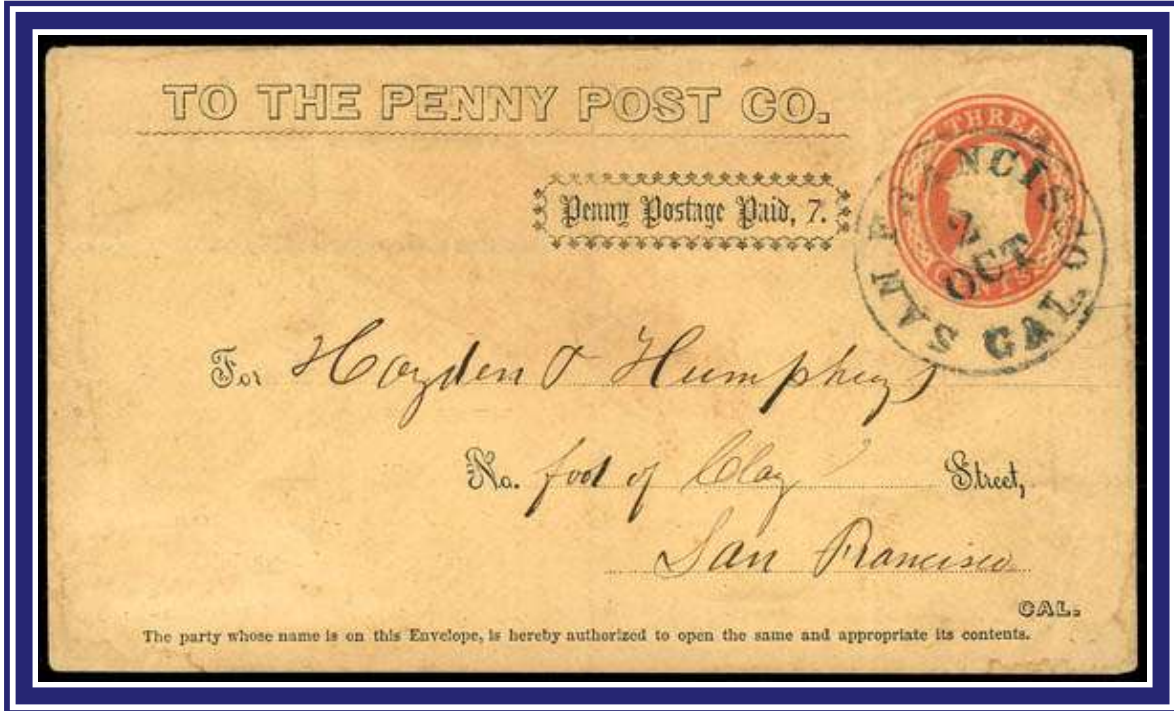 TO THE PENNY POST CO.
THREE
CENTS
SAN FRANCISCO CAL.
7
OCT
Penny Postage Paid, 7.
For Hayden & Humphreys
No. foot of Clay Street,
San Francisco
CAL.
The party whose name is on this Envelope, is hereby authorized to open the same and appropriate its contents.